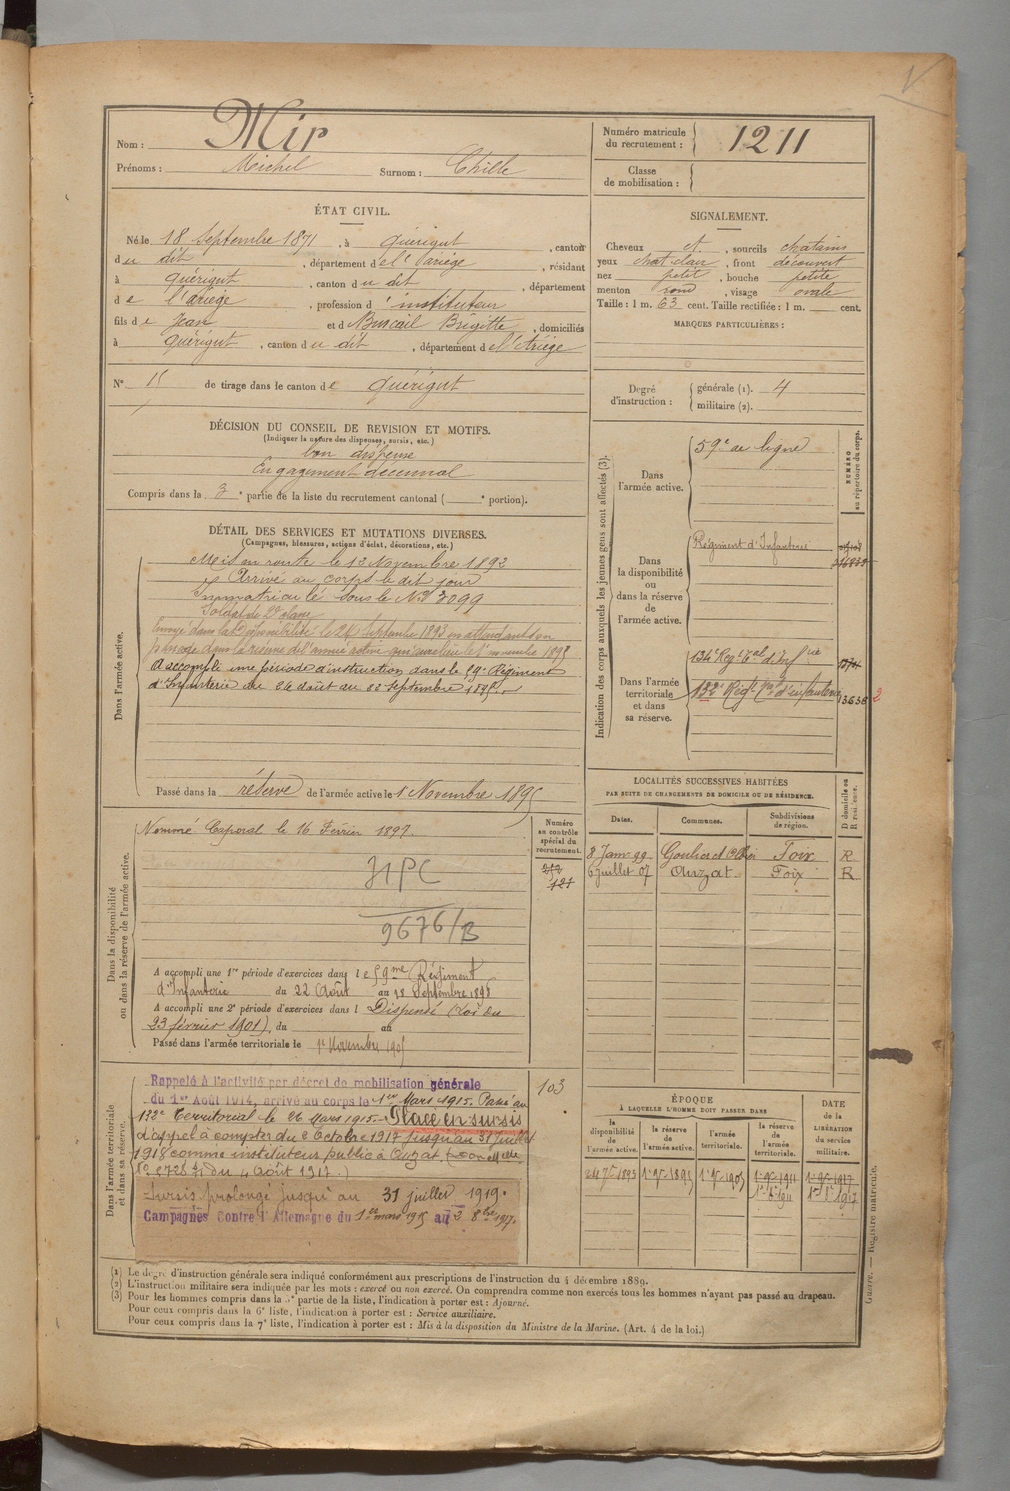 Nom : Mir
Prénoms : Michel Surnom : Chille
Numéro matricule du recrutement : 1211
Classe de mobilisation :
ÉTAT CIVIL.
Né le 18 Septembre 1871, à Quérigut, canton
du dit, département de l'Ariège, résidant
à Quérigut, canton du dit, département
de l'ariège, profession d'instituteur
fils de Jean et de Buscail Brigitte, domiciliés
à Quérigut, canton du dit, département de l'Ariège
N° 15 de tirage dans le canton de Quérigut
SIGNALEMENT.
Cheveux et, sourcils chatains
yeux chat clair, front découvert
nez petit, bouche petite
menton rond, visage ovale
Taille : 1 m. 63 cent. Taille rectifiée : 1 m. cent.
MARQUES PARTICULIÈRES :
Degré d'instruction :
générale (1). 4
militaire (2).
DÉCISION DU CONSEIL DE REVISION ET MOTIFS.
(Indiquer la nature des dispenses, sursis, etc.)
bon dispensé
Engagement décennal
Compris dans la 3e partie de la liste du recrutement cantonal ( e portion).
DÉTAIL DES SERVICES ET MUTATIONS DIVERSES.
(Campagnes, blessures, actions d'éclat, décorations, etc.)
Dans l'armée active.
Mis en route le 12 Novembre 1892
Arrivé au corps le dit jour
Immatriculé sous le N°
Soldat de 2e classe
Envoyé dans la disponibilité le 24 Septembre 1893 en attendant son
passage dans la réserve de l'armée active qui aura lieu le 1 novembre 1895
A accompli une période d'instruction dans le 59e Régiment
d'Infanterie du 26 août au 22 Septembre 1895.
Passé dans la réserve de l'armée active le 1 Novembre 1895
Indication des corps auxquels les jeunes gens sont affectés (3).
NUMÉRO au répertoire du corps.
Dans l'armée active.
59e de ligne
Dans la disponibilité ou dans la réserve de l'armée active.
Régiment d'Infanterie
Dans l'armée territoriale et dans sa réserve.
134e Regt Tal d'Infie
132e Régt Tal d'infanterie
13638 2
LOCALITÉS SUCCESSIVES HABITÉES
PAR SUITE DE CHANGEMENTS DE DOMICILE OU DE RÉSIDENCE.
Dates. Communes. Subdivisions de région. D domicile ou R résidence.
8 Janv 99 Goulier et Foix R
6 juillet 07 Auzat Foix R
Dans la disponibilité ou dans la réserve de l'armée active.
Numéro au contrôle spécial du recrutement.
Nommé Caporal le 16 Février 1897.
9676/B
A accompli une 1re période d'exercices dans le 59me Régiment
d'Infanterie du 22 Août au 18 Septembre 1898
A accompli une 2e période d'exercices dans l Dispensé (Loi du
23 février 1901), du au
Passé dans l'armée territoriale le 1er Novembre 1905
Dans l'armée territoriale et dans sa réserve.
103
Rappelé à l'activité par décret de mobilisation générale
du 1er Août 1914, arrivé au corps le 1er Mars 1915. Passé au
132e Territorial le 26 Mars 1915. Placé en sursis
d'appel à compter du 2 Octobre 1917 jusqu'au 31 Juillet
1918 comme instituteur public à Auzat.
du 4 Août 1917.)
Sursis prolongé jusqu'au 31 juillet 1919.
Campagnes contre l'Allemagne du 1er mars 1915 au 2 8bre 1917.
ÉPOQUE
À LAQUELLE L'HOMME DOIT PASSER DANS
la disponibilité de l'armée active.
la réserve de l'armée active.
l'armée territoriale.
la réserve de l'armée territoriale.
DATE de la LIBÉRATION du service militaire.
24 7e 1893 1er 9e 1895 1er 9e 1905 1er 9e 1911 1er 9e 1917
(1) Le degré d'instruction générale sera indiqué conformément aux prescriptions de l'instruction du 4 décembre 1889.
(2) L'instruction militaire sera indiquée par les mots : exercé ou non exercé. On comprendra comme non exercés tous les hommes n'ayant pas passé au drapeau.
(3) Pour les hommes compris dans la 5e partie de la liste, l'indication à porter est : Ajourné.
Pour ceux compris dans la 6e liste, l'indication à porter est : Service auxiliaire.
Pour ceux compris dans la 7e liste, l'indication à porter est : Mis à la disposition du Ministre de la Marine. (Art. 4 de la loi.)
Guerre. — Registre matricule.